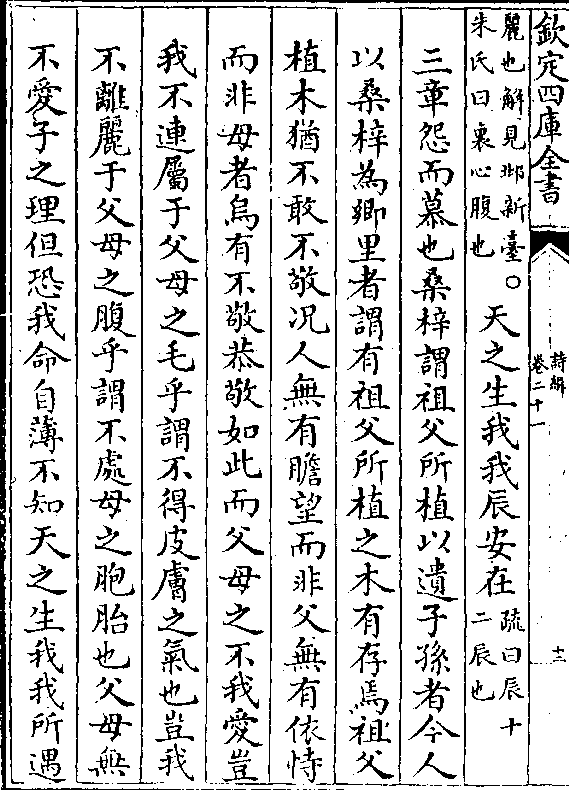 欽定四庫全書
詩緝
卷二十一
十三
麗也解見邶新臺○
朱氏曰裏心腹也
天之生我我辰安在
疏曰辰十
二辰也
三章怨而慕也桑梓謂祖父所植以遺子孫者今人
以桑梓為鄉里者謂有祖父所植之木有存焉祖父
植木猶不敢不敬况人無有瞻望而非父無有依恃
而非母者烏有不敬恭敬如此而父母之不我愛豈
我不連屬于父母之毛乎謂不得皮膚之氣也豈我
不離麗于父母之腹乎謂不處母之胞胎也父母無
不愛子之理但恐我命自薄不知天之生我我所遇